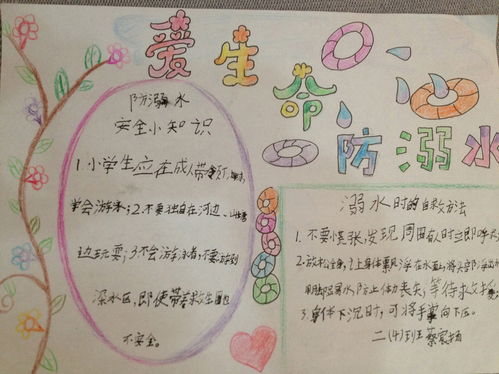 爱生命
防溺水
防溺水
安全小知识
1小学生应在成人带领下
学会游泳;2.不要独自在河边、
边玩耍;3.不会游泳者,不要游到
深水区,即使带着救生圈也
不安全。
溺水时的自救方法
1.不要慌张,发现周围有人时立即呼
2.放松全身,让身体飘浮在水面上,将头部浮出水
用脚踢水,防止体力丧失,等待救援
3.身体下沉时,可将手掌向下压。
二(4)班